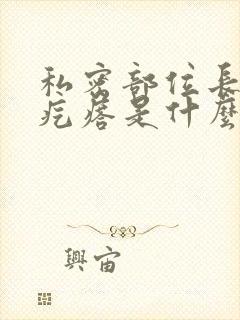 私密部位長
疙瘩是什麼
興宙